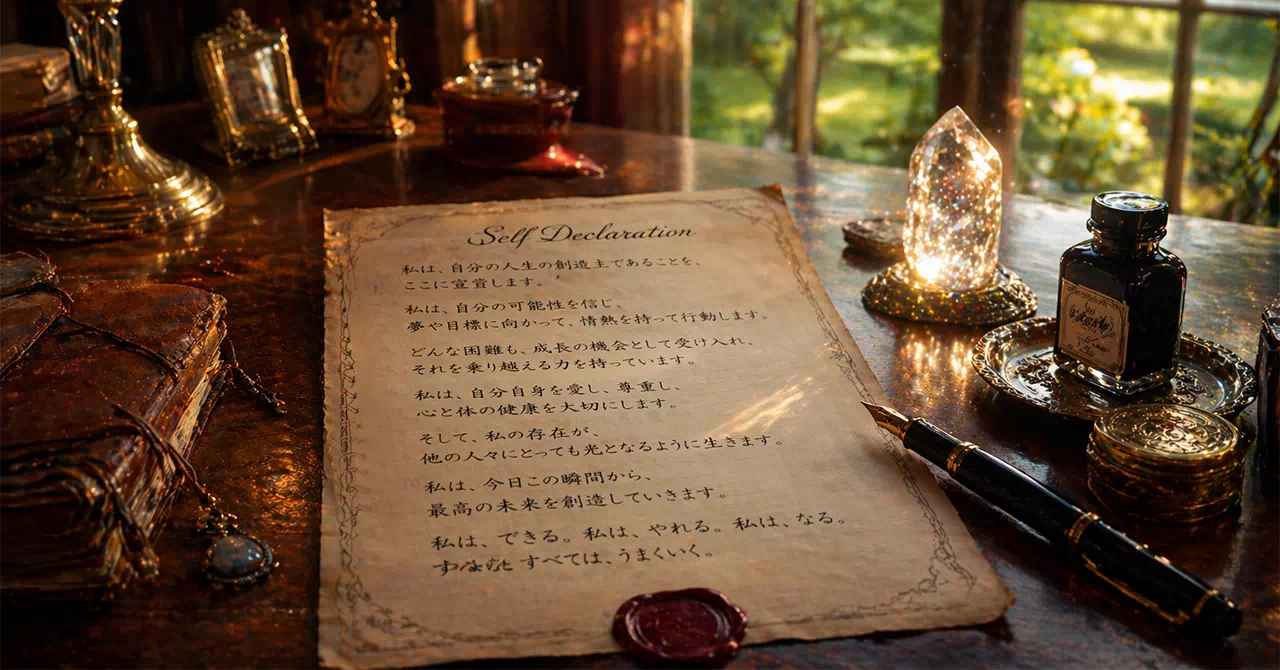 Self Declaration
私は、自分の人生の創造主であることを、
ここに宣言します。
私は、自分の可能性を信じ、
夢や目標に向かって、情熱を持って行動します。
どんな困難も、成長の機会として受け入れ、
それを乗り越える力を持っています。
私は、自分自身を愛し、尊重し、
心と体の健康を大切にします。
そして、私の存在が、
他の人々にとっても光となるように生きます。
私は、今日この瞬間から、
最高の未来を創造していきます。
私は、できる。私は、やれる。私は、なる。
すべては、うまくいく。